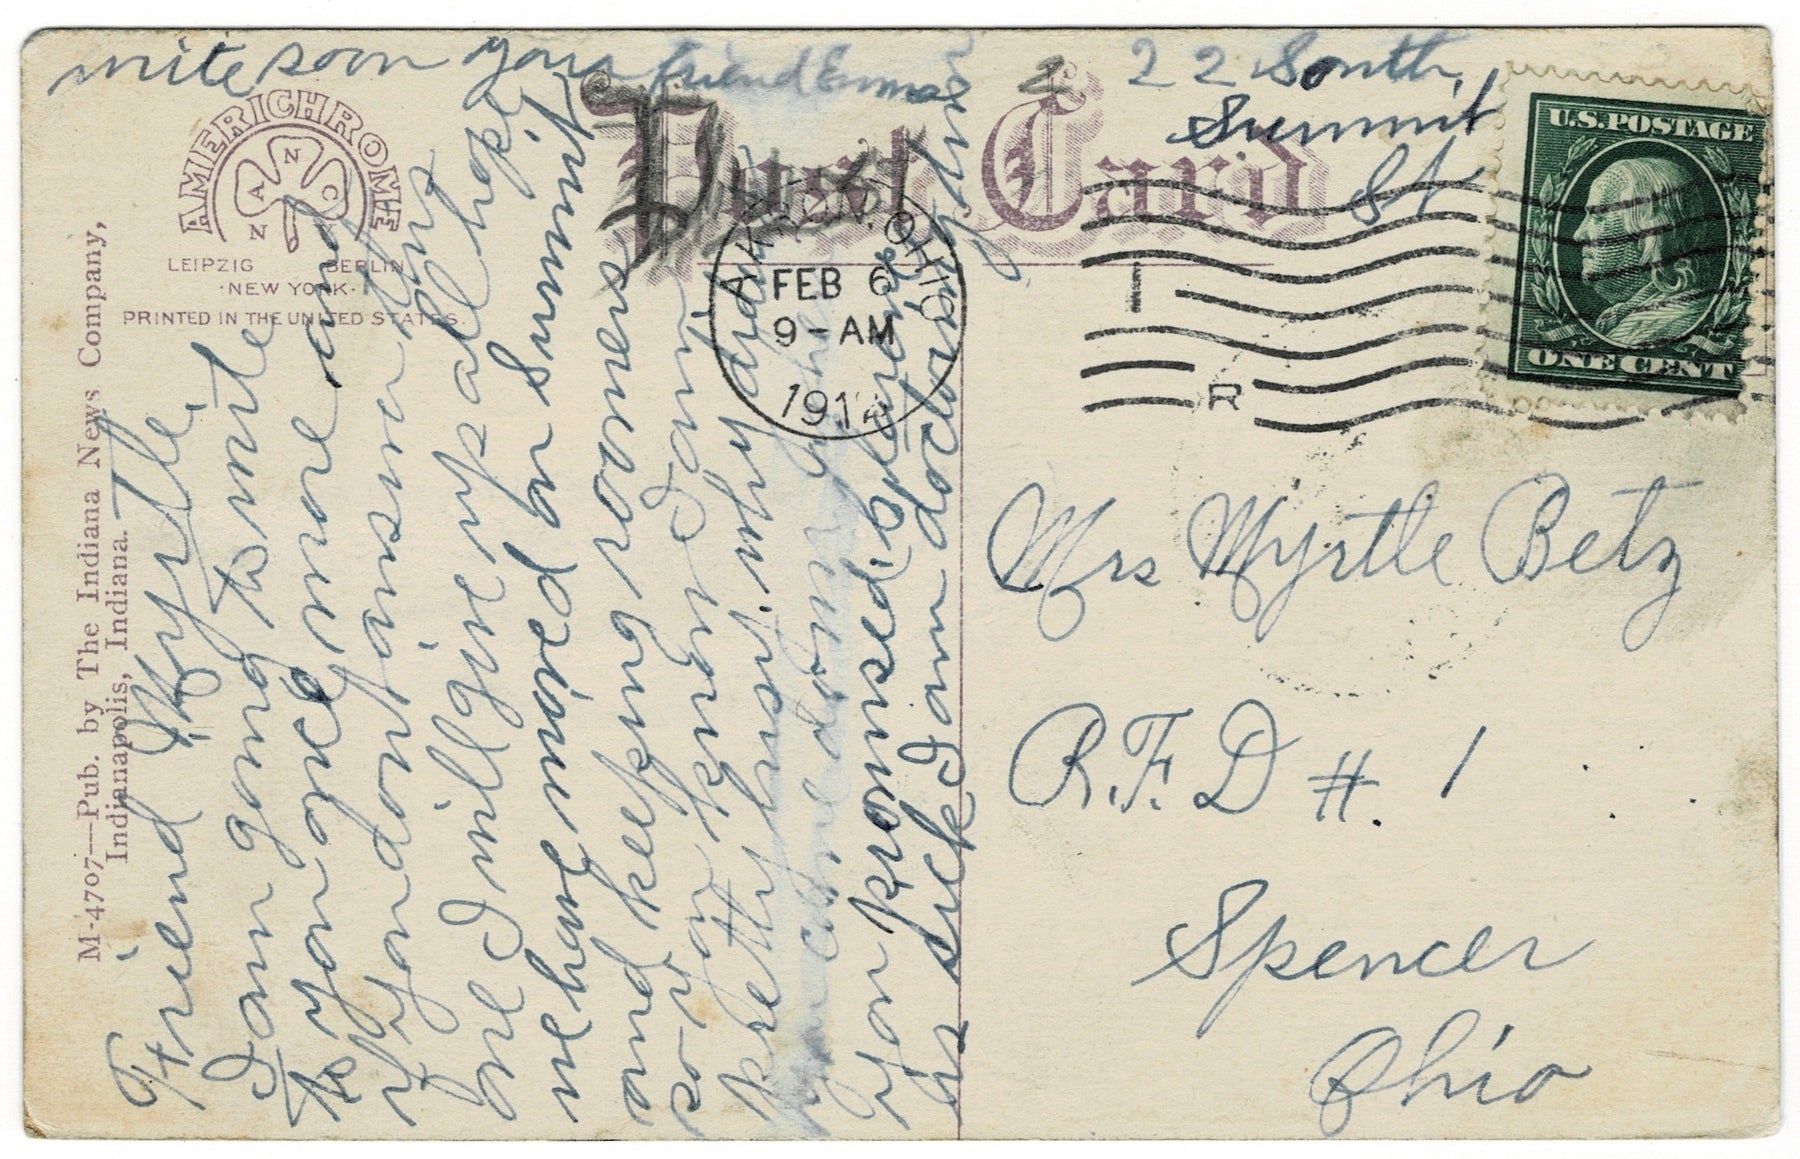 Friend Myrtle.
I am going to write
to you once more and
if you dont answer this
one I will give up all hope
we have moved on Summit
and keeping roomers
so you know I am
pretty busy. why dident
you come down when
you promised. Clarence
is sick I am doctoring him
write soon your friend Emma
22 South
Summit
St
Post Card
AMERICHROME
A N C
N
LEIPZIG BERLIN
·NEW YORK·
PRINTED IN THE UNITED STATES.
M-4707—Pub. by The Indiana News Company,
Indianapolis, Indiana.
AKRON, OHIO
FEB 6
9-AM
1912
1
R
U.S. POSTAGE
ONE CENT
Mrs Myrtle Betz
R.F.D #. 1
Spencer
Ohio